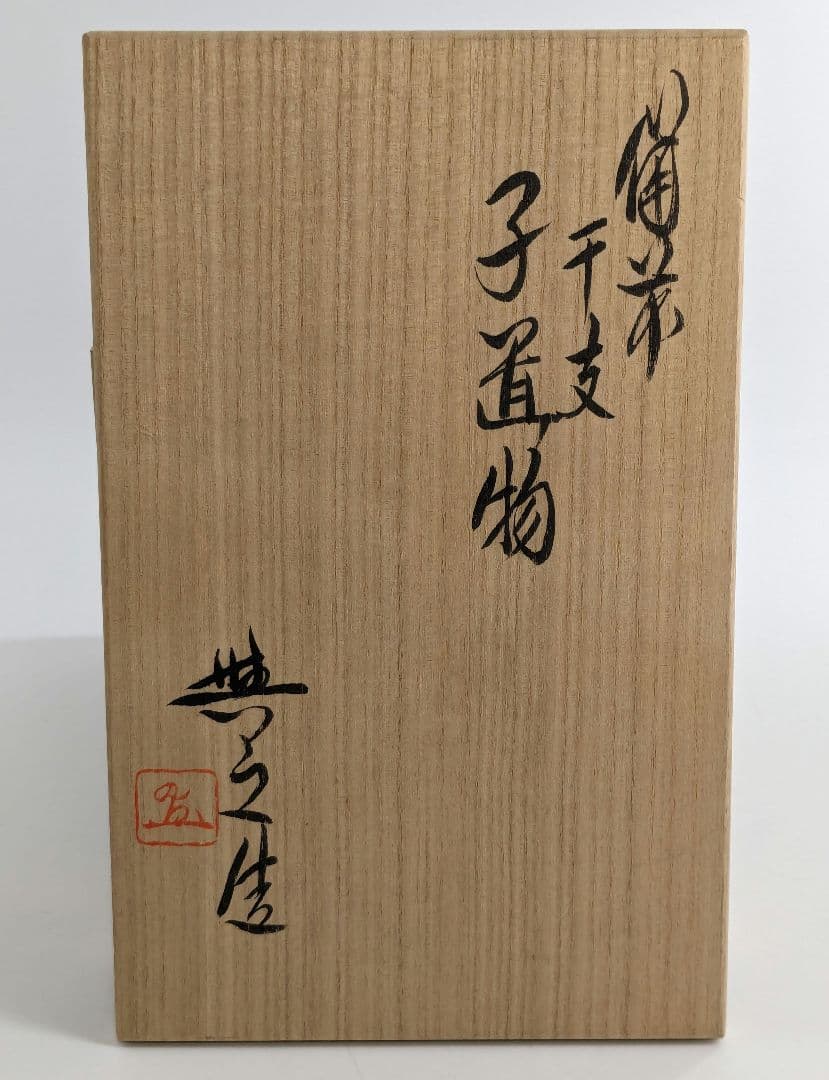 備前
干支
子置物
典之造